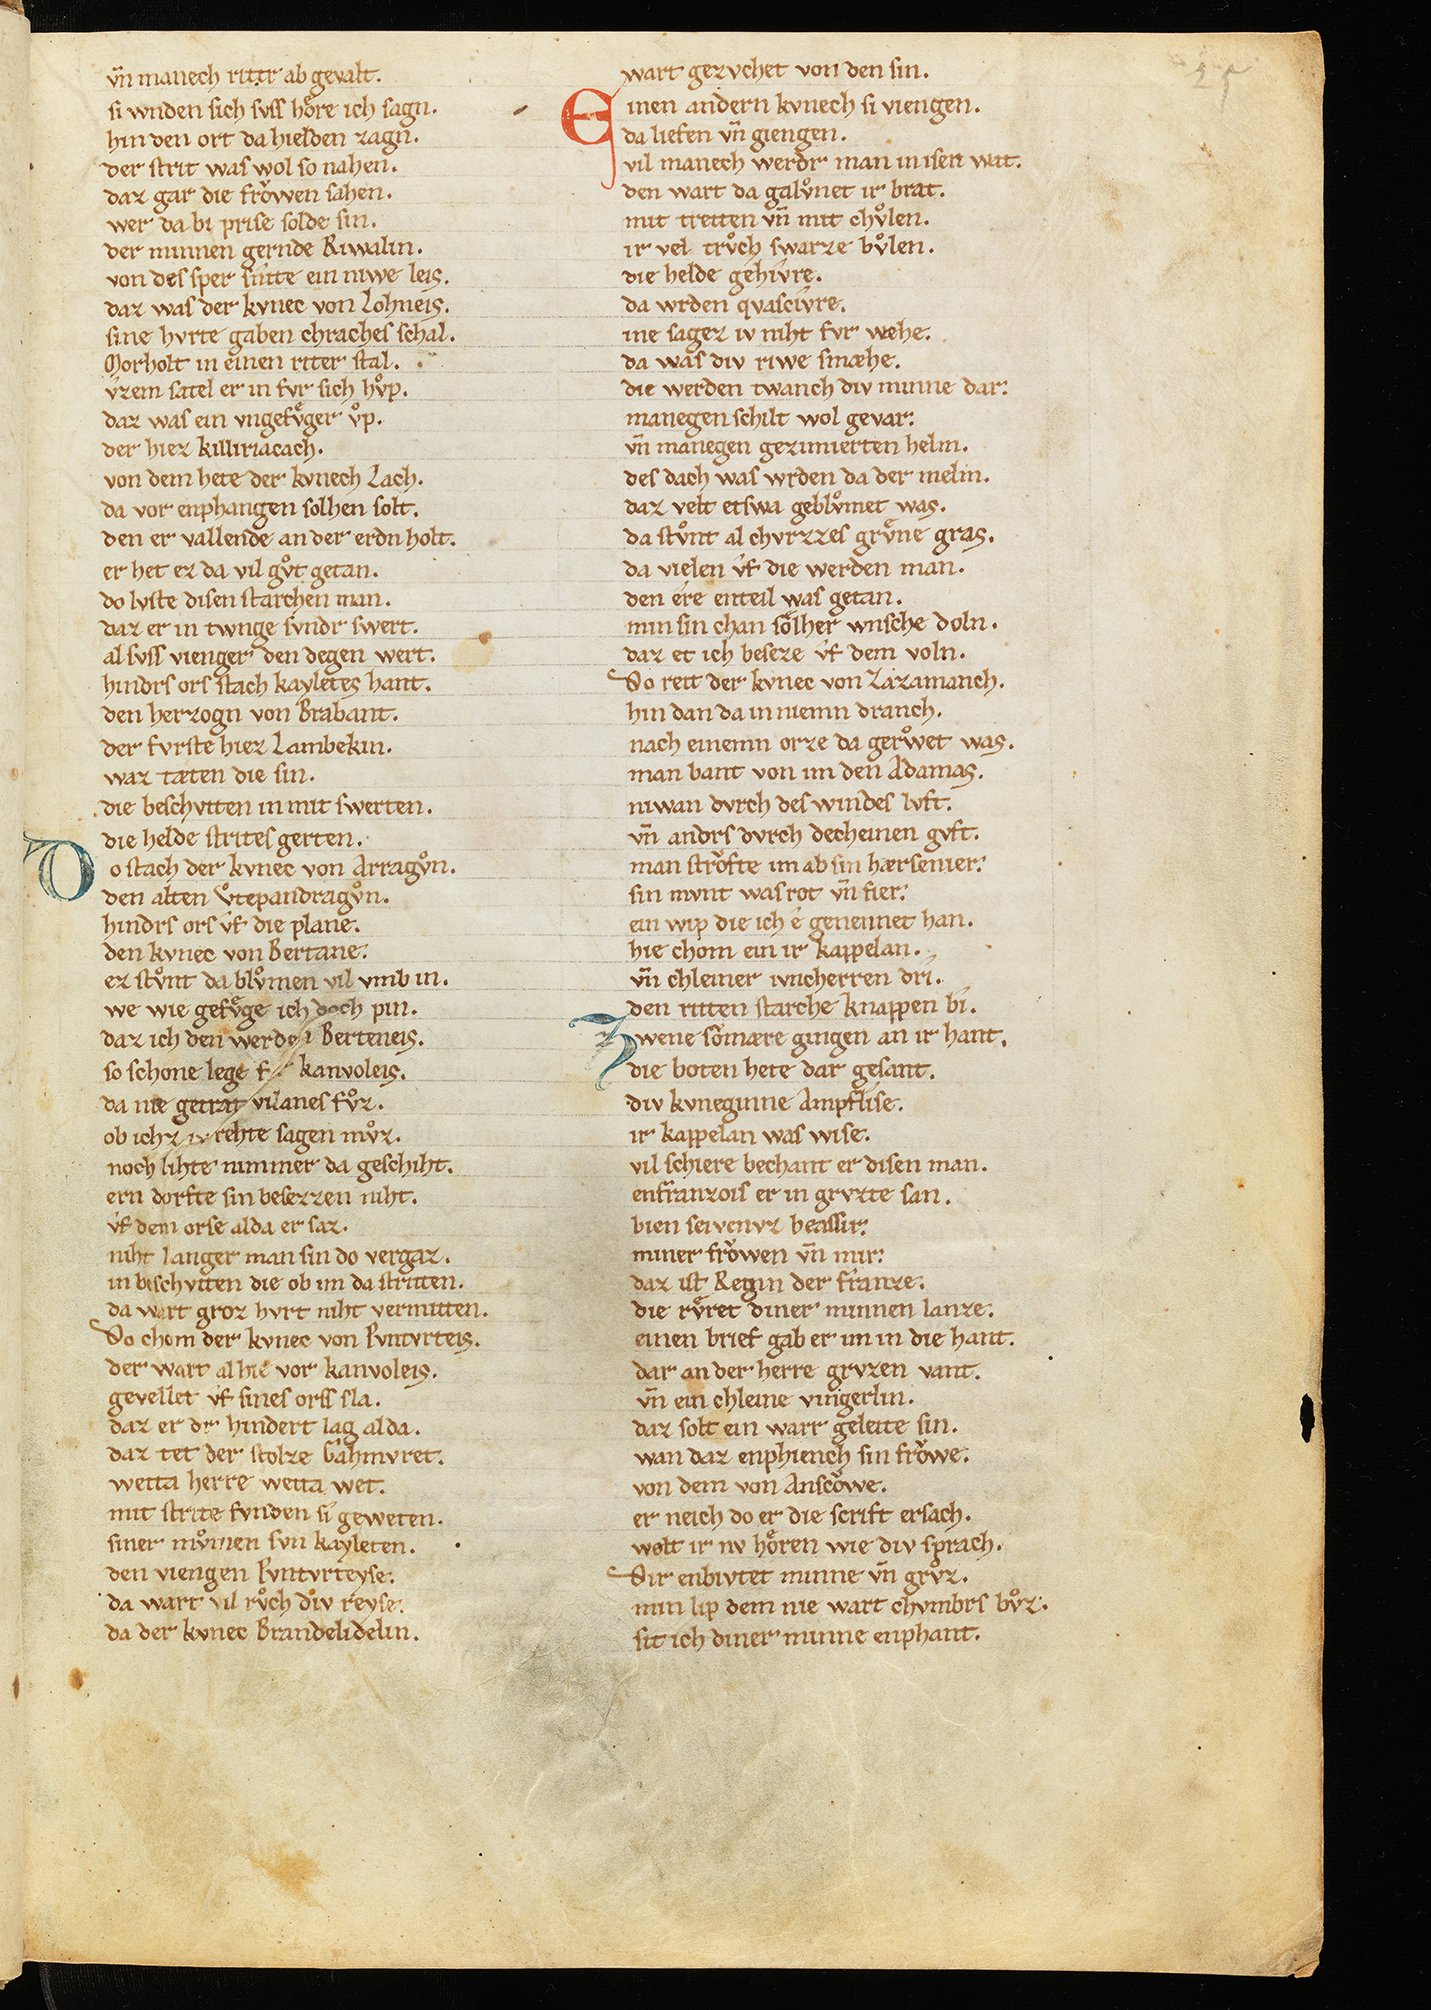 25
vn̄ manech ritter ab gevalt.
si wnden sich svſſ hoͤre ich sagn.
hin den ort da hielden zagn.
der strit was wol so nahen.
daz gar die froͮwen sahen.
wer da bi prise solde sin.
der minnen gernde Riwalin.
von des sper snitte ein niwe leis.
daz was der kvnec von Lohneis.
sine hvrte gaben chraches schal.
Morholt in einen riter stal.
vzem satel er in fvr sich hvͦp.
daz was ein vngefvͤger vͦp.
der hiez killiriacach.
von dem hete der kvnech Lach.
da vor enphangen solhen solt.
den er vallende an der erdn holt.
er het ez da vil gvͦt getan.
do lvste disen starchen man.
daz er in twnge svndr swert.
al svſſ vienger den degen wert.
hindrs ors stach kayletes hant.
den herzogn von Brabant.
der fvrste hiez Lambekin.
waz tæten die sin.
die beschvtten in mit swerten.
die helde strites gerten.
Do stach der kvnec von Arragvͦn.
den alten vͦtepandragvͦn.
hindrs ors vf die plane.
den kvnec von Bertane.
ez stvͦnt da blvͦmen vil vmb in.
we wie gefvͤge ich doch pin.
daz ich den werden Berteneis.
so schone lege fvr kanvoleis.
da nie getrat vilanes fvͦz.
ob ichz iv rehte sagen mvͦz.
noch lihte nimmer da geschiht.
ern dorfte sin besezzen niht.
vf dem orse alda er saz.
niht langer man sin do vergaz.
in beschvtten die ob im da stritten.
da wart groz hvrt niht vermitten.
Do chom der kvnec von Pvntvrteis.
der wart al hie vor kanvoleis.
gevellet vf sines orss sla.
daz er dr hindert lag alda.
daz tet der stolze Gahmvret.
wetta herre wetta wet.
mit strite fvnden si geweten.
siner mvͦmen svn kayleten.
den viengen Pvntvrteyse.
da wart vil rvͦch div reyse.
da der kvnec Brandelidelin.
wart gezvchet von den sin.
Einen andern kvnech si viengen.
da liefen vn̄ giengen.
vil manech werdr man in isen wat.
den wart da galvͦnet ir brat.
mit tretten vn̄ mit chvͦlen.
ir vel trvͦch swarze bvͦlen.
die helde gehivre.
da wrden qvascivre.
ine sagez iv niht fvr wehe.
da was div riwe smæhe.
die werden twanch div minne dar.
manegen schilt wol gevar.
vn̄ manegen gezimierten helm.
des dach was wrden da der melm.
daz velt etswa geblvͦmet was.
da stvͦnt al chvrzzes grvͤne gras.
da vielen vf die werden man.
den ere enteil was getan.
min sin chan soͤlher wnsche doln.
daz et ich beseze vf dem voln.
Do reit der kvnec von Zazamanch.
hin dan da in niemn dranch.
nach einemn orze da geroͮwet was.
man bant von im den Adamas.
niwan dvrch des windes lvft.
vn̄ andrs dvrch decheinen gvft.
man stroͮfte im ab sin hærsenier.
sin mvnt was rot vn̄ fier.
ein wip die ich e genennet han.
hie chom ein ir kappelan.
vn̄ chleiner ivncherren dri.
den ritten starche knappen bi.
Zwene soͮmære gingen an ir hant.
die boten hete dar gesant.
div kvneginne Ampflise.
ir kappelan was wise.
vil schiere bechant er disen man.
enfranzois er in grvzte san.
bien seivenvz beassir.
miner froͮwen vn̄ mir.
daz ist Regin der franze.
die rvͤret diner minnen lanze.
einen brief gab er im in die hant.
dar an der herre grvzen vant.
vn̄ ein chleine vingerlin.
daz solt ein warr geleite sin.
wan daz enphiench sin froͮwe.
von dem von Anscoͮwe.
er neich do er die scrift ersach.
wolt ir nv hoͤren wie div sprach.
Dir enbivtet minne vn̄ grvͦz.
min lip dem nie wart chvmbrs bvͦz.
sit ich diner minne enphant.